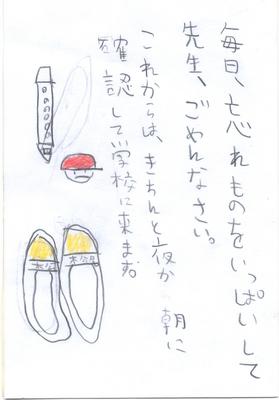 毎日、忘れものをいっぱいして
先生、ごめんなさい。
これからは、きちんと夜か 朝に
確認して学校に来ます。